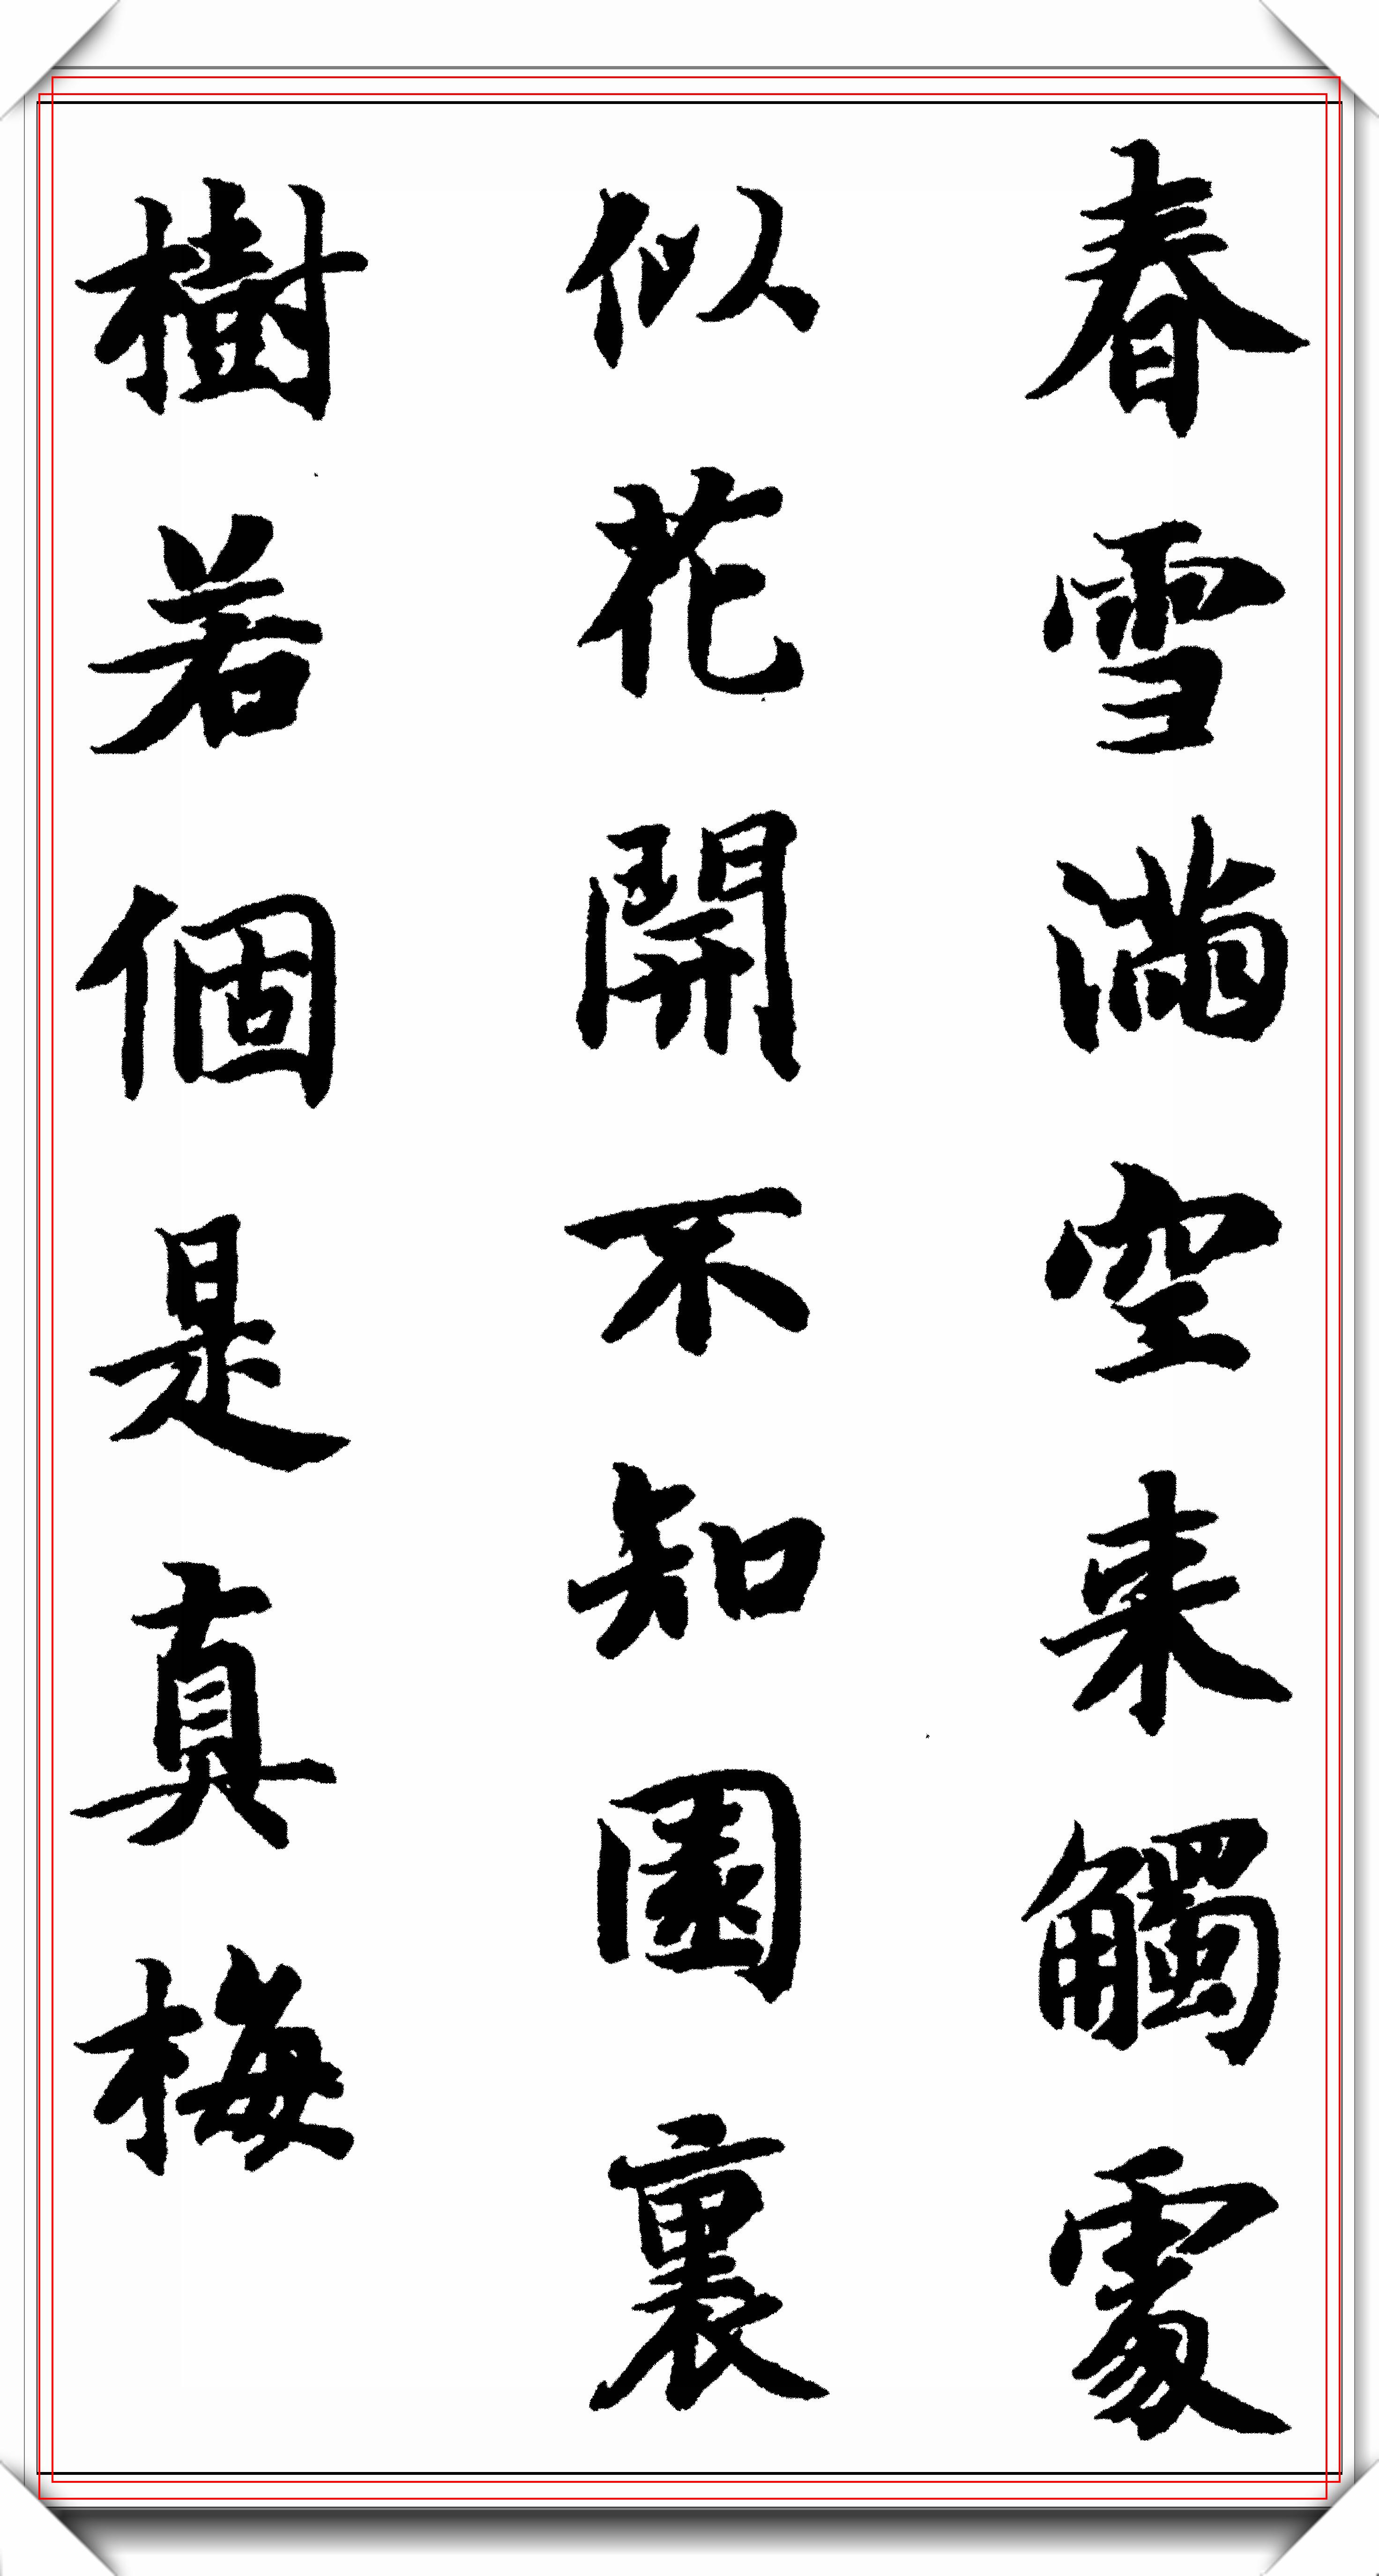 春雪滿空来觸處
似花開不知園裏
樹若個是真梅